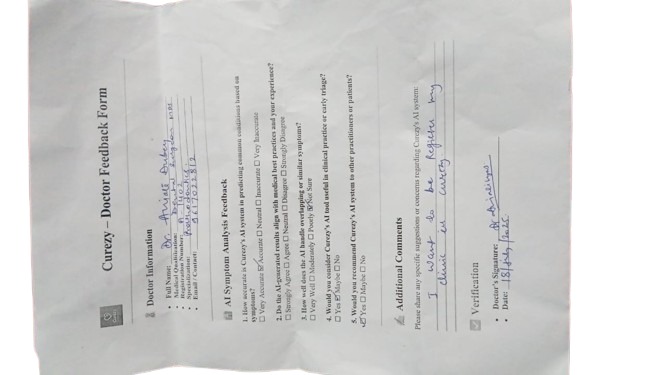 Curezy – Doctor Feedback Form
Doctor Information
• Full Name: Dr Anjali Dubey
• Medical Qualification: Dental Surgeon
• Registration Number: A
• Specialization:
• Email / Contact:
AI Symptom Analysis Feedback
1. How accurate is Curezy's AI system in predicting common conditions based on
symptoms?
☐ Very Accurate ☑ Accurate ☐ Neutral ☐ Inaccurate ☐ Very Inaccurate
2. Do the AI-generated results align with medical best practices and your experience?
☐ Strongly Agree ☐ Agree ☐ Neutral ☐ Disagree ☐ Strongly Disagree
3. How well does the AI handle overlapping or similar symptoms?
☐ Very Well ☐ Moderately ☐ Poorly ☑ Not Sure
4. Would you consider Curezy's AI tool useful in clinical practice or early triage?
☐ Yes ☑ Maybe ☐ No
5. Would you recommend Curezy's AI system to other practitioners or patients?
☑ Yes ☐ Maybe ☐ No
Additional Comments
Please share any specific suggestions or concerns regarding Curezy's AI system:
I want to be Register my
clinic in curezy
Verification
• Doctor's Signature:
• Date: 18/July/2025